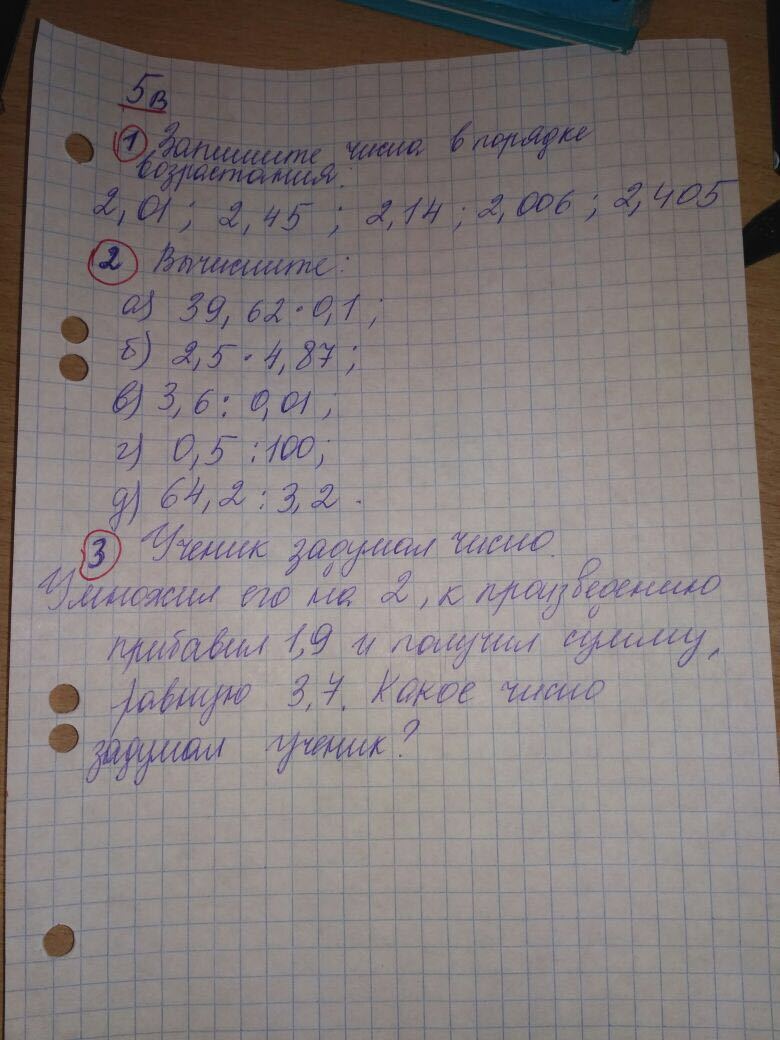 5в
1 Запишите числа в порядке
возрастания:
2,01; 2,45; 2,14; 2,006; 2,405
2 Вычислите:
а) 39,62·0,1;
б) 2,5·4,87;
в) 3,6:0,01;
г) 0,5:100;
д) 64,2:3,2.
3 Ученик задумал число.
Умножил его на 2, к произведению
прибавил 1,9 и получил сумму,
равную 3,7. Какое число
задумал ученик?